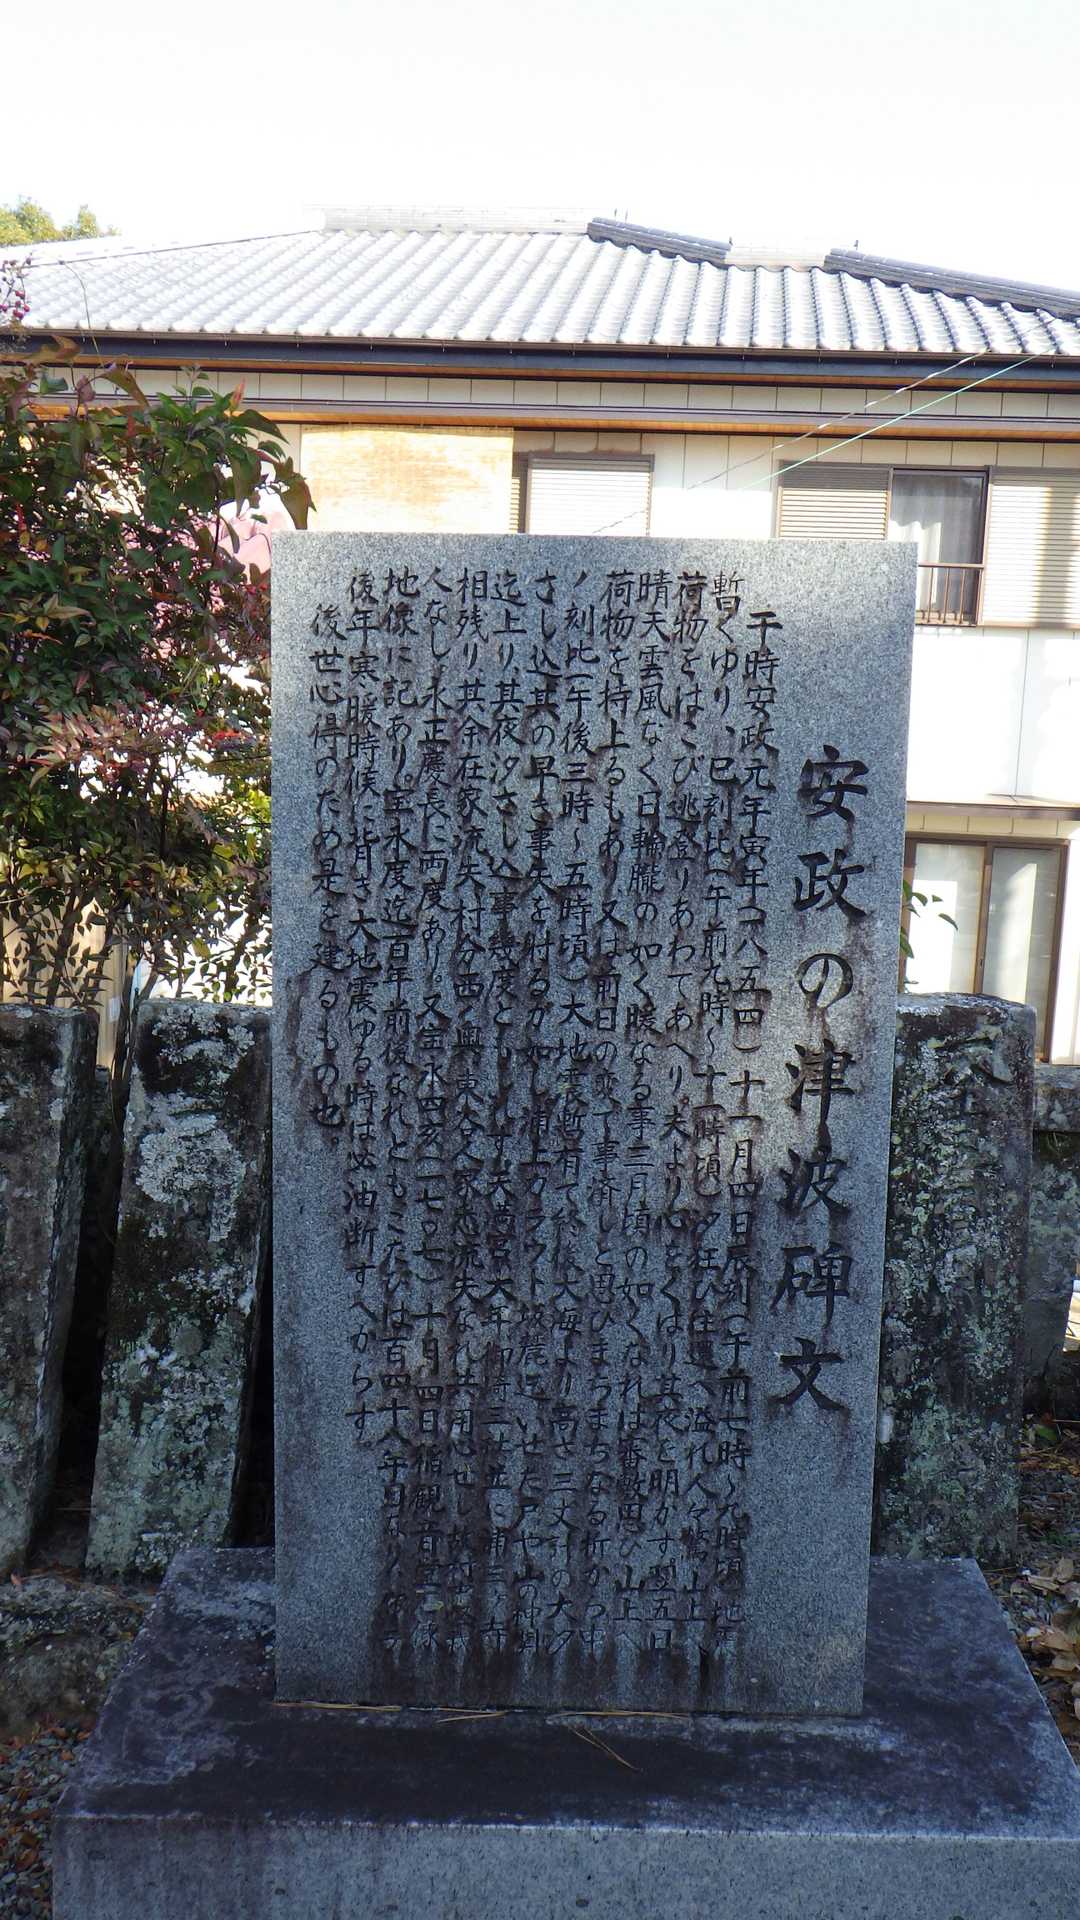 安政の津波碑文
干時安政元年寅年（一八五四）十一月四日辰刻（午前七時～九時頃）地震
暫くゆり、巳刻比（午前九時～十一時頃）汐狂ひ往還へ溢れ人々驚山上へ
荷物をはこび逃登りあわてあへり。夫より心をくばり其夜を明かす。翌五日
晴天雲風なく日輪朧の如く暖なる事三月頃の如くなれは番敷思ひ山上へ
荷物を持上るもあり又は前日の変て事済しと思ひまちまちなる折から申
ノ刻比（午後三時～五時頃）大地震暫有て大海より高さ三丈計の大汐
さし込其の早き事矢を射るが如し浦上カラウト坂麓迄いせた戸や山の神輿
迄上り、其夜汐さし込事幾度ともしれす天満宮大年御崎三社並ニ浦三ヶ寺
相残り其余在家流失村分西ノ奥東谷人家流失なれ共用心せし故村
人なし。永正慶長に両度あり。又宝永四亥（一七〇七）十月四日
地像に記あり。宝永度迄百年前後なれともこたひは百四十八年目なり
後年寒暖時候に背き大地震ゆる時は必油断すへからす。
後世心得のため是を建るもの也。